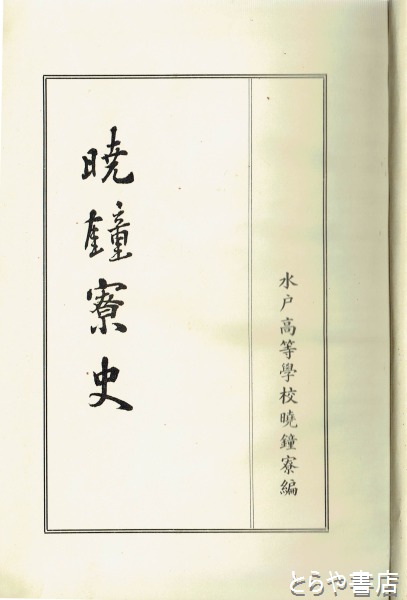 水戸高等學校曉鐘寮編
曉鐘寮史
とらや書店